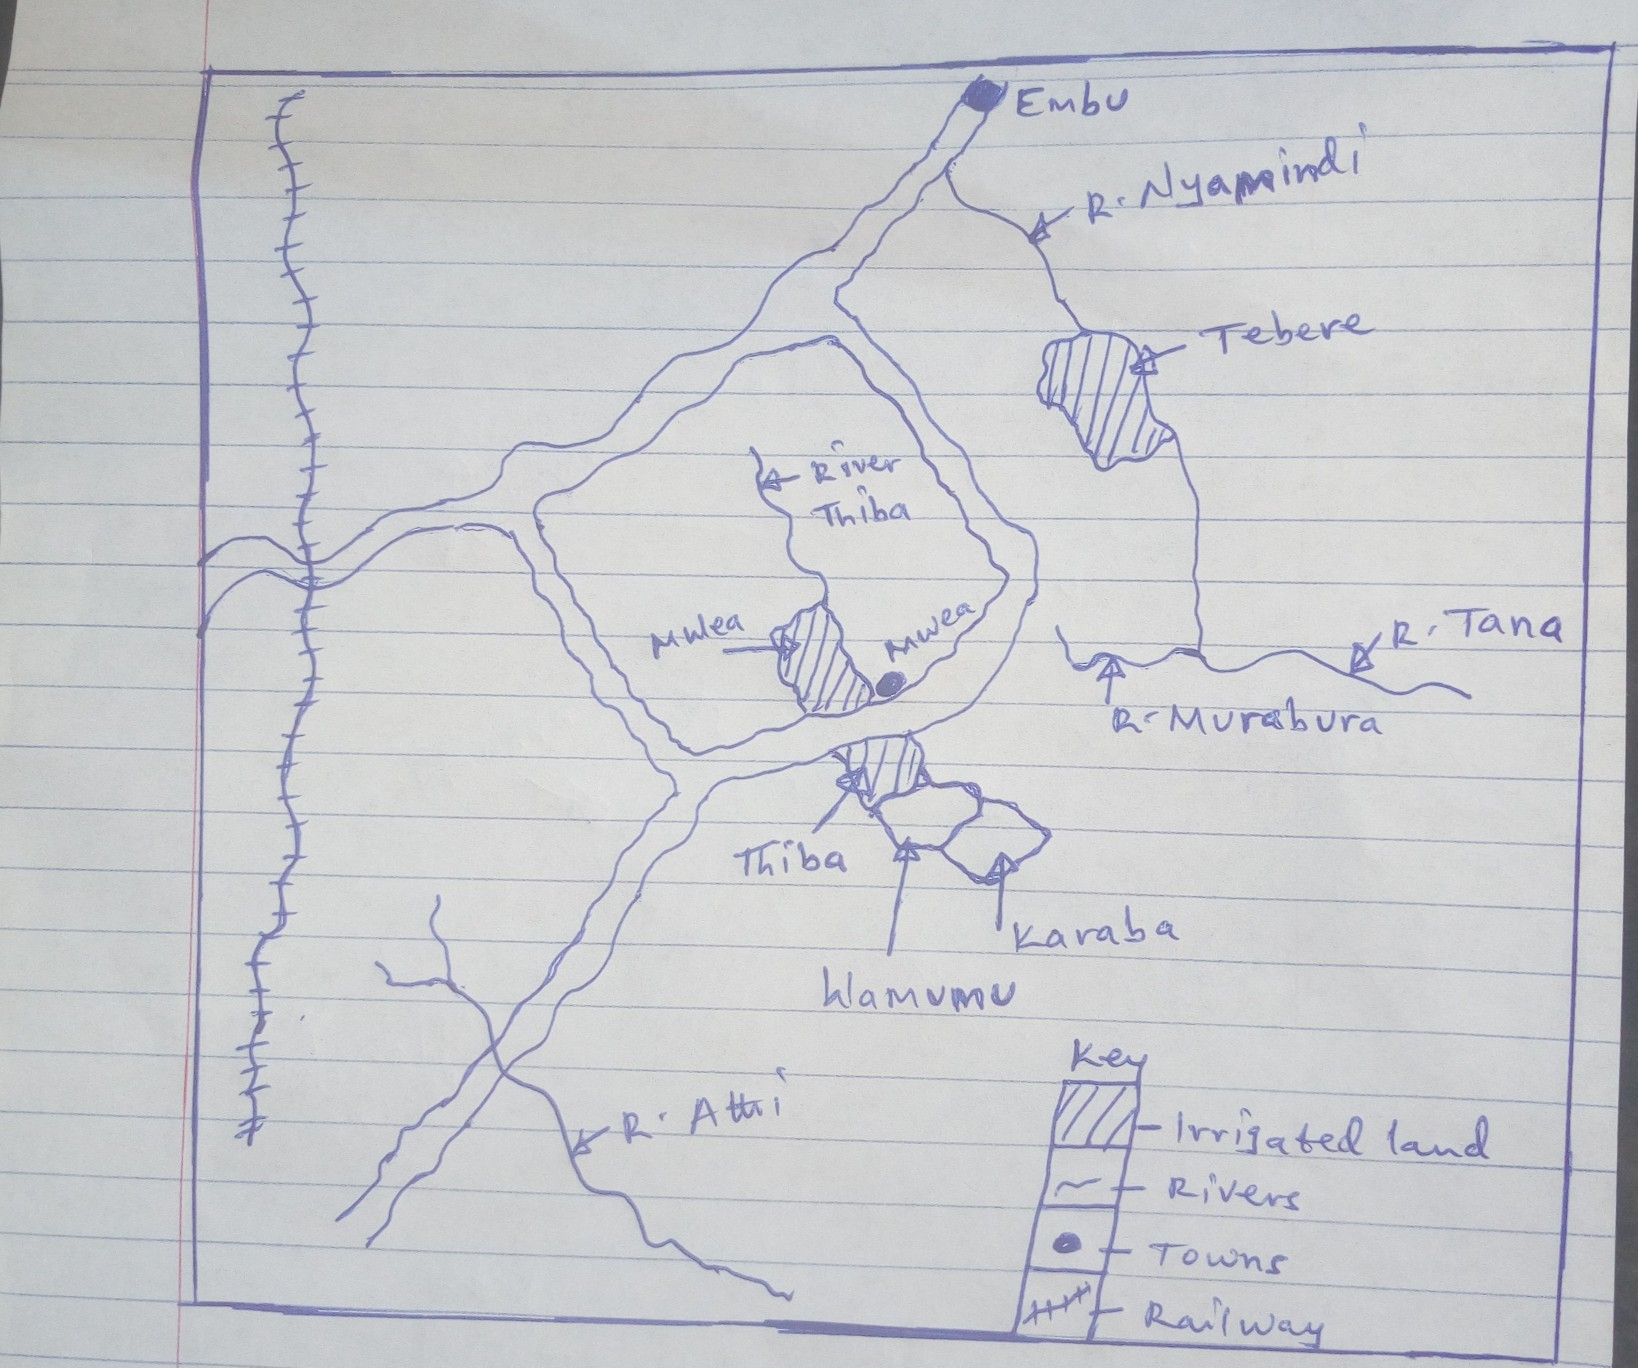 Embu
R. Nyamindi
Tebere
River
Thiba
Mwea
Mwea
R. Tana
R. Murabura
Thiba
Karaba
Wamumu
R. Athi
Key
Irrigated land
Rivers
Towns
Railway